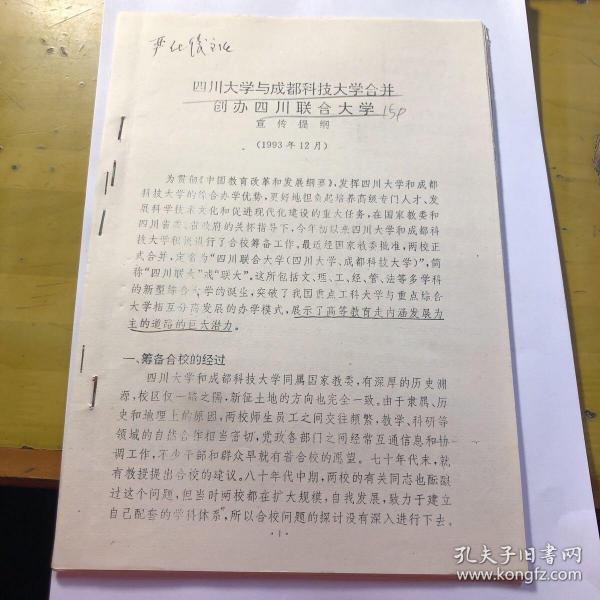 四川大学与成都科技大学合并
创办四川联合大学 15P
宣传提纲
(1993年12月)
为贯彻《中国教育改革和发展纲要》,发挥四川大学和成都
科技大学的综合办学优势,更好地担负起培养高级专门人才、发
展科学技术文化和促进现代化建设的重大任务,在国家教委和
四川省委、省政府的关怀指导下,今年初以来四川大学和成都科
技大学积极进行了合校筹备工作。最近经国家教委批准,两校正
式合并,定名为“四川联合大学(四川大学、成都科技大学)”,简
称“四川联大”或“联大”。这所包括文、理、工、经、管、法等多学科
的新型综合大学的诞生,突破了我国重点工科大学与重点综合
大学相互分离发展的办学模式,展示了高等教育走内涵发展为
主的道路的巨大潜力。
一、筹备合校的经过
四川大学和成都科技大学同属国家教委,有深厚的历史渊
源,校区仅一路之隔,新征土地的方向也完全一致。由于隶属、历
史和地理上的原因,两校师生员工之间交往频繁,教学、科研等
领域的自然合作相当密切,党政各部门之间经常互通信息和协
调工作,不少干部和群众早就有着合校的愿望。七十年代末,就
有教授提出合校的建议。八十年代中期,两校的有关同志也酝酿
过这个问题,但当时两校都在扩大规模,自我发展,致力于建立
自己配套的学科体系,所以合校问题的探讨没有深入进行下去。
·1·
孔夫子旧书网
www.kongfz.com